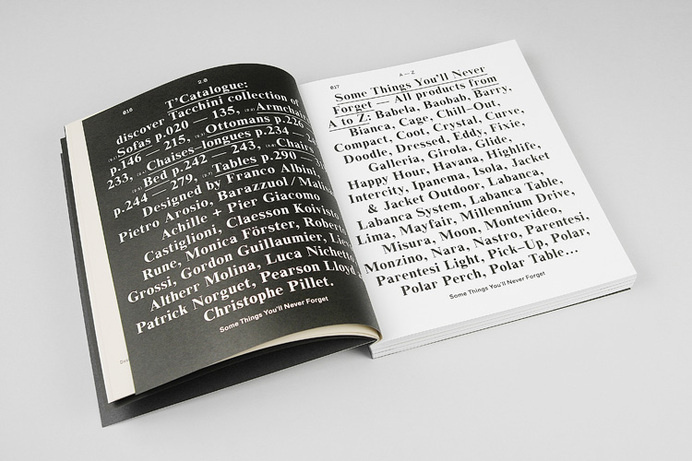 016
2.0
T'Catalogue:
discover Tacchini collection of
Sofas p.020 — 135, Armchairs
p.146 — 215, Ottomans p.226
233, Chaises-longues p.234 —
Bed p.242 — 243, Chairs
p.244 — 279, Tables p.290
Designed by Franco Albini,
Pietro Arosio, Barazzuol / Malisan
Achille + Pier Giacomo
Castiglioni, Claesson Koivisto
Rune, Monica Förster, Roberto
Grossi, Gordon Guillaumier,
Altherr Molina, Luca Nichetto
Patrick Norguet, Pearson Lloyd
Christophe Pillet.
Some Things You'll Never Forget
017
A — Z
Some Things You'll Never
Forget — All products from
A to Z: Babela, Baobab, Barry,
Bianca, Cage, Chill-Out,
Compact, Coot, Crystal, Curve,
Doodle, Dressed, Eddy, Fixie,
Galleria, Girola, Glide,
Happy Hour, Havana, Highlife,
Intercity, Ipanema, Isola, Jacket
& Jacket Outdoor, Labanca,
Labanca System, Labanca Table,
Lima, Mayfair, Millennium Drive,
Misura, Moon, Montevideo,
Monzino, Nara, Nastro, Parentesi,
Parentesi Light, Pick-Up, Polar,
Polar Perch, Polar Table...
Some Things You'll Never Forget